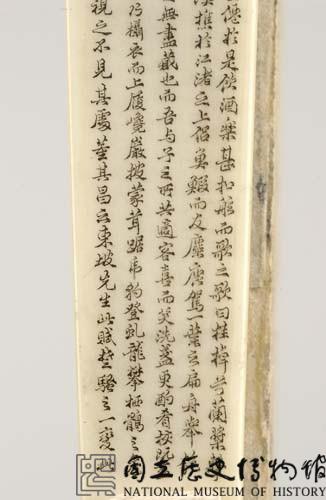 僊於是飲酒樂甚扣舷而歌之歌曰桂棹兮蘭槳
樵於江渚之上侶魚鰕而友麋鹿駕一葉之扁舟舉
無盡藏也而吾与子之所共適客喜而笑洗盞更酌肴核既
乃攝衣而上履巉巖披蒙茸踞虎豹登虬龍攀栖鶻之
視之不見其處董其昌云東坡先生此賦楚騷之一變
國立歷史博物館
NATIONAL MUSEUM OF HISTORY